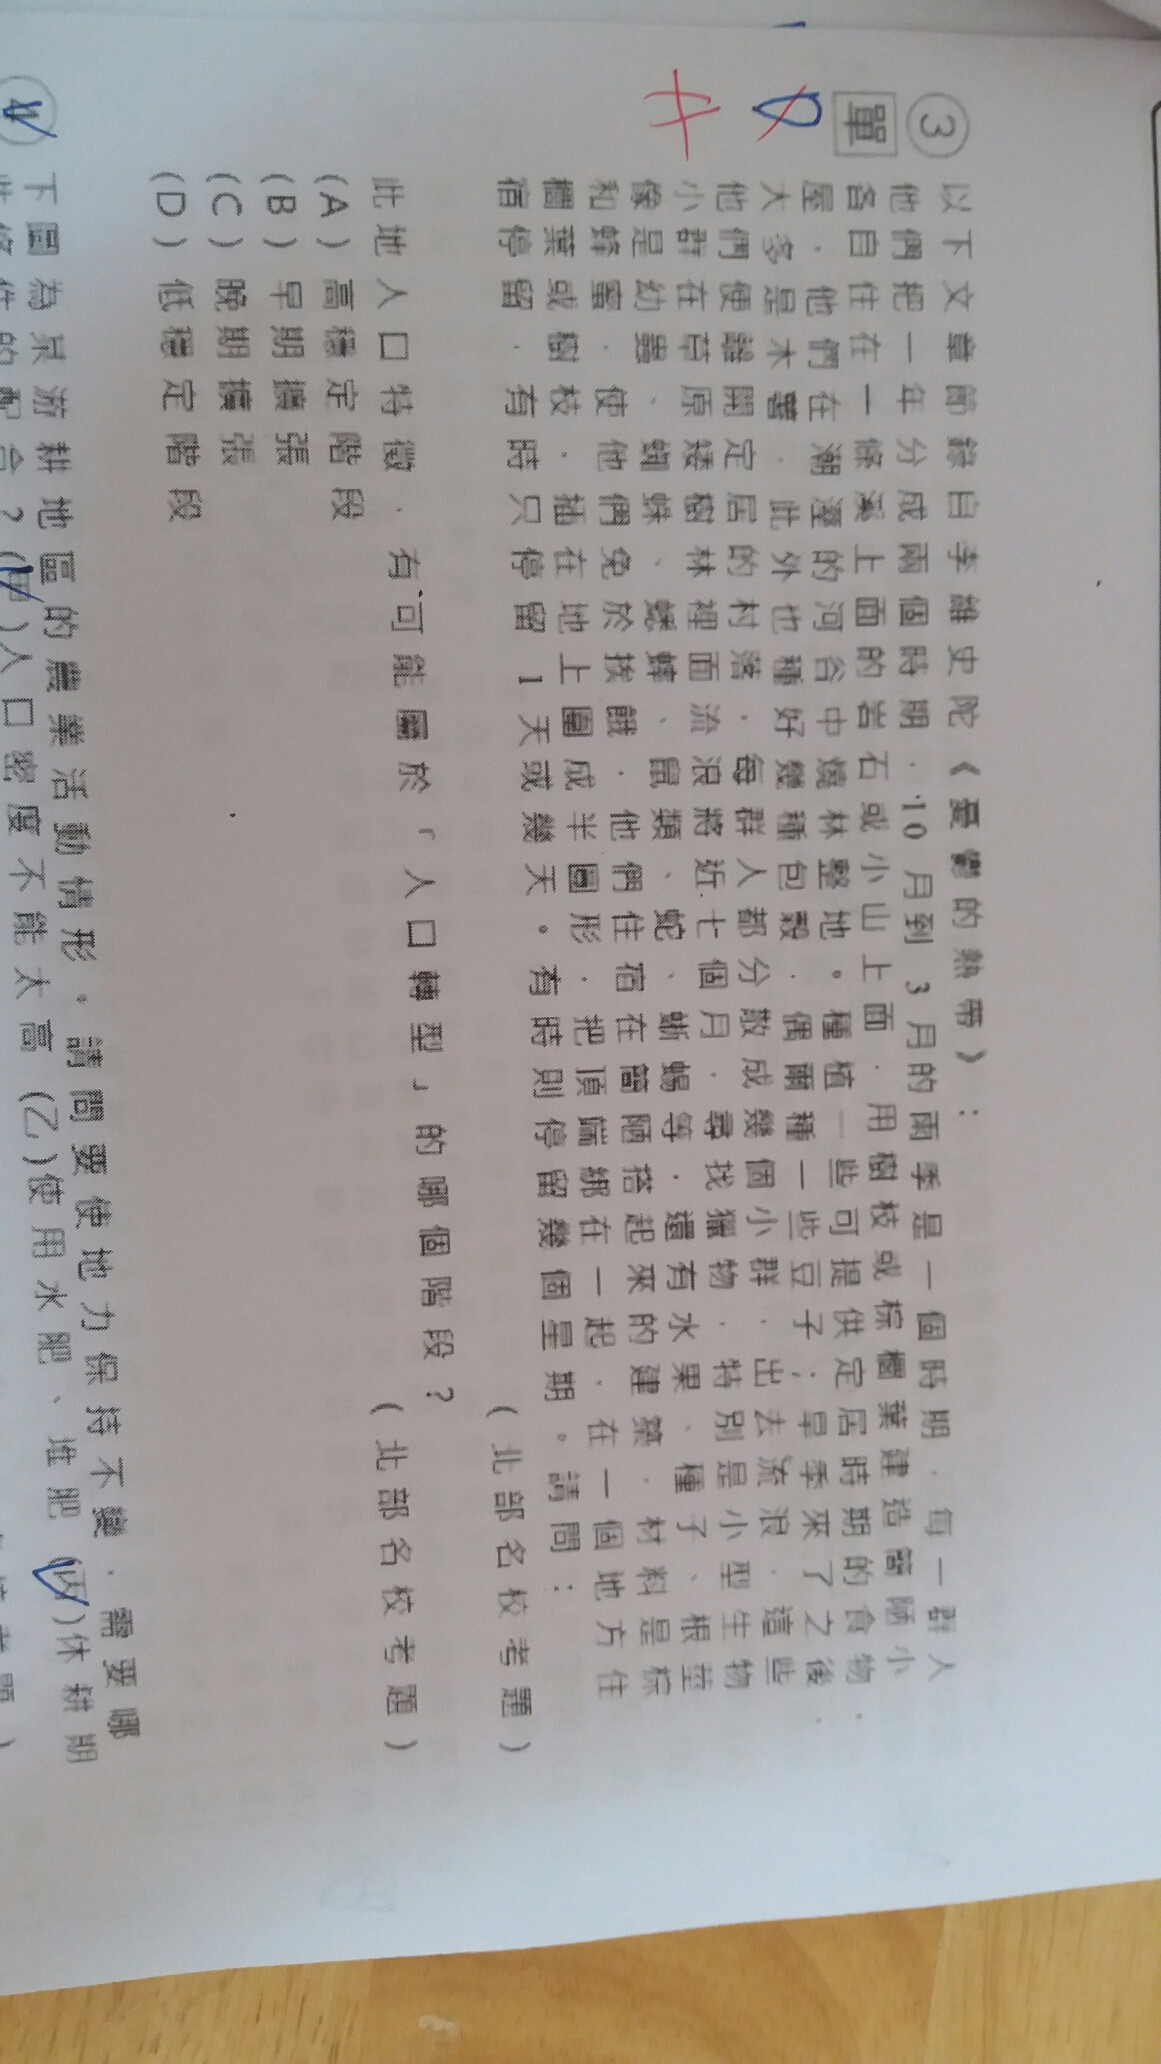 ③ 以下文章節錄自李維史陀《憂鬱的熱帶》:
單 他們把一年分成兩個時期,10月到3月的雨季是一個時期,每一群人
D 各自住在一條溪上面的岩石或小山上面,用樹枝或棕櫚葉建造簡陋小
屋,他們在潮溼的河谷中燒林整地。種植一些可提供定居時期的食物,
A 大多是木薯,此外也種好幾種包穀,偶爾種一些豆子;旱季來了之後,
他們便離開定居的村落,每群人都分散成幾個小群,出去流浪,這些
小群在草原矮樹林裡面流浪將近七個月,尋找獵物,特別是小型生物
像是幼蟲、蜘蛛、螺蜂、鼠類、蛇、蜥蜴等,還有水果、種子、根莖
和蜂蜜,使他們免於挨餓,他們住宿在簡陋搭起來的建築,材料是棕
櫚葉或樹枝,插在地上圍成半圓形,把頂端綁在一起,在一個地方住
宿停留,有時只停留1天或幾天。有時則停留幾個星期。請問:
(北部名校考題)
此地人口特徵,有可能屬於「人口轉型」的哪個階段?
(北部名校考題)
(A)高穩定階段
(B)早期擴張
(C)晚期擴張
(D)低穩定階段
下圖為某游耕地區的農業活動情形。請問要使地力保持不變,需要哪
些條件的配合?(甲)人口密度不能太高 (乙)使用水肥、堆肥 (丙)休耕期